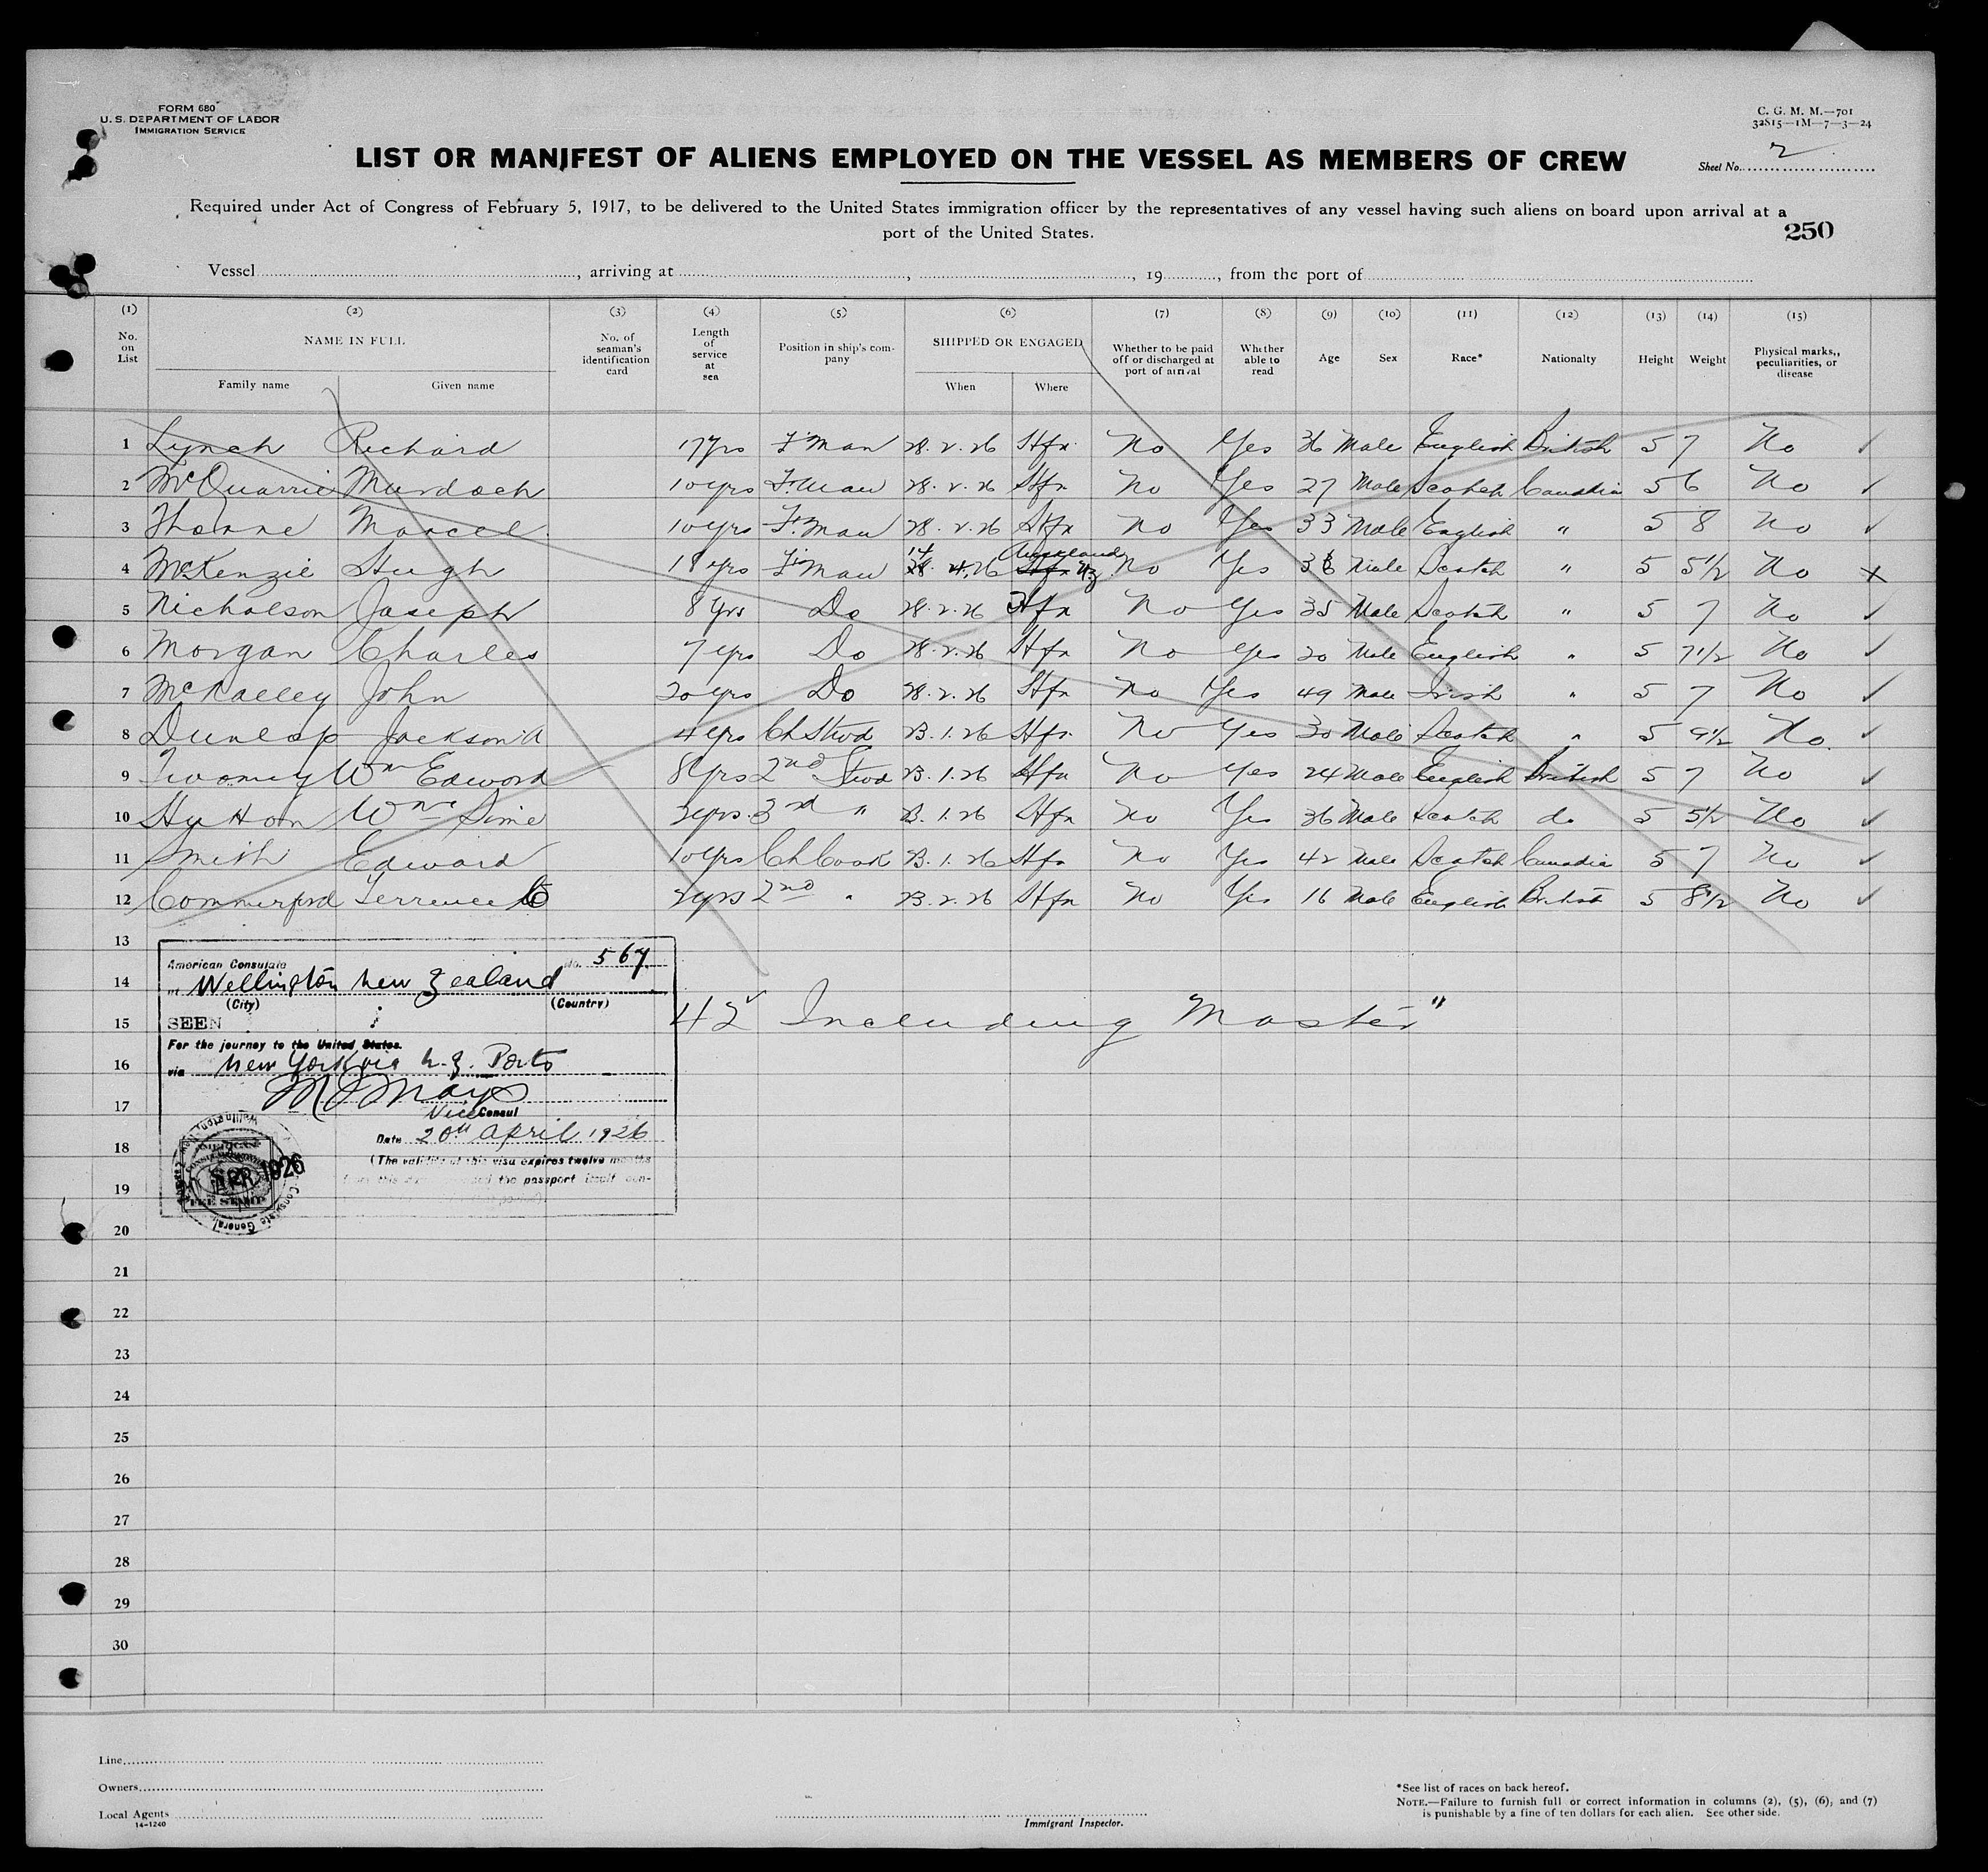 FORM 680
U. S. DEPARTMENT OF LABOR
IMMIGRATION SERVICE
C. G. M. M.—701
32815—1M—7—3—24
LIST OR MANIFEST OF ALIENS EMPLOYED ON THE VESSEL AS MEMBERS OF CREW
Sheet No. 2
Required under Act of Congress of February 5, 1917, to be delivered to the United States immigration officer by the representatives of any vessel having such aliens on board upon arrival at a
port of the United States.
250
Vessel , arriving at , , 19 , from the port of
(1) (2) (3) (4) (5) (6) (7) (8) (9) (10) (11) (12) (13) (14) (15)
No. on List NAME IN FULL No. of seaman's identification card Length of service at sea Position in ship's com-pany SHIPPED OR ENGAGED Whether to be paid off or discharged at port of arrival Whether able to read Age Sex Race* Nationalty Height Weight Physical marks,, peculiarities, or disease
Family name Given name When Where
1 Lynch Richard 17 yrs F'Man 28.2.26 Hfx No Yes 36 Male English British 5 7 No ✓
2 McQuarrie Murdoch 10 yrs F'Man 28.2.26 Hfx No Yes 27 Male Scotch Canadia 5 6 No ✓
3 Thorne Marcel 10 yrs F'Man 28.2.26 Hfx No Yes 33 Male English " 5 8 No ✓
4 McKenzie Hugh 18 yrs F'Man 14 28.4.26 Auckland Hfx NZ No Yes 38 Male Scotch " 5 5 1/2 No x
5 Nicholson Joseph 8 yrs Do 28.2.26 Hfx No Yes 35 Male Scotch " 5 7 No ✓
6 Morgan Charles 7 yrs Do 28.2.26 Hfx No Yes 20 Male English " 5 7 1/2 No ✓
7 John 20 yrs Do 28.2.26 Hfx No Yes 49 Male Irish " 5 7 No ✓
8 Dunlop Jackson A 4 yrs Ch Stwd 23.1.26 Hfx No Yes 30 Male Scotch " 5 9 1/2 No ✓
9 Twomey Wm Edward 8 yrs 2nd Stwd 23.1.26 Hfx No Yes 24 Male English British 5 7 No ✓
10 Hutton Wm Sime 2 yrs 3rd " 23.1.26 Hfx No Yes 36 Male Scotch do 5 5 1/2 No ✓
11 Smith Edward 10 yrs Ch Cook 23.1.26 Hfx No Yes 42 Male Scotch Canadia 5 7 No ✓
12 Commerford Terrence 2 yrs 2nd " 23.2.26 Hfx No Yes 16 Male English British 5 8 1/2 No ✓
13
14
15
16
17
18
19
20
21
22
23
24
25
26
27
28
29
30
American Consulate No. 567
at Wellington New Zealand
(City) (Country)
SEEN
For the journey to the United States.
via New York via N.Z. Ports
Vice Consul
Date 20th April 1926
(The validity of this visa expires twelve months
APR 1926
FEE STAMP
Consulate General
42 Including "Master"
Line
Owners
Local Agents
14-1240
Immigrant Inspector.
*See list of races on back hereof.
NOTE.—Failure to furnish full or correct information in columns (2), (5), (6), and (7)
is punishable by a fine of ten dollars for each alien. See other side.